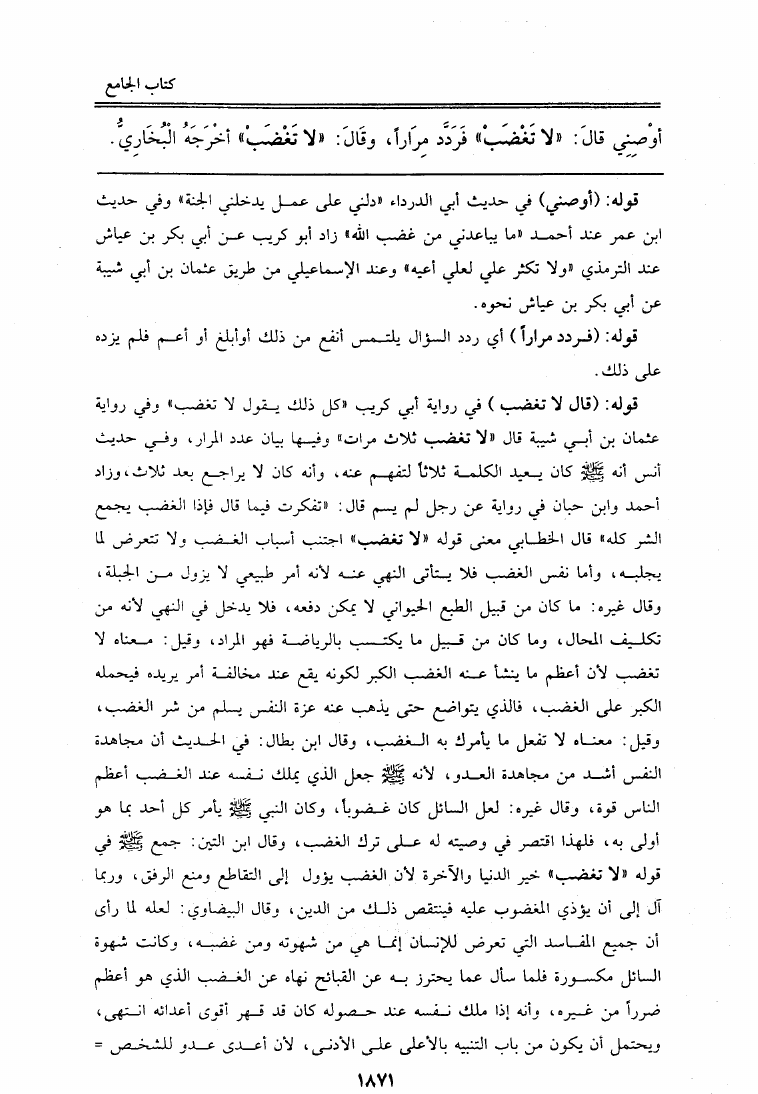 كتاب الجامع
أوْصِنِي قالَ: «لا تَغْضَبْ» فَرَدَّد مِرَاراً، وقَالَ: «لا تَغْضَبْ» أخْرَجَهُ الْبُخَارِيُّ.
قوله: (أوصني) في حديث أبي الدرداء «دلني على عمـل يدخلني الجنة» وفي حديث
ابن عمر عند أحمـد «ما يباعدني من غضب الله» زاد أبو كريب عـن أبي بكر بن عياش
عند الترمذي «ولا تكثر علي لعلي أعيه» وعند الإسماعيلي من طريق عثمان بن أبي شيبة
عن أبي بكر بن عياش نحوه.
قوله: (فـردد مراراً) أي ردد السؤال يلتـمس أنفع من ذلك أوأبلغ أو أعـم فلم يزده
على ذلك.
قوله: (قال لا تغضب) في رواية أبي كريب «كل ذلك يـقول لا تغضب» وفي رواية
عثمان بن أبـي شيبة قال «لا تغضب ثلاث مرات» وفيـها بيان عدد المرار، وفـي حديث
أنس أنه ﷺ كان يـعيد الكلمـة ثلاثاً لتفهـم عنه، وأنه كان لا يراجـع بعد ثلاث، وزاد
أحمد وابن حبان في رواية عن رجل لـم يسم قال: «تفكرت فيما قال فإذا الغضب يجمع
الشر كله» قال الخطـابي معنى قوله «لا تغضب» اجتنب أسباب الغـضب ولا تتعرض لما
يجلبـه، وأما نفس الغضب فلا يـتأتى النهي عنـه لأنه أمر طبيعي لا يزول مـن الجبلة،
وقال غيره: ما كان من قبيل الطبع الحيواني لا يمكن دفعه، فلا يدخل في النهي لأنه من
تكلـيف المحال، وما كان من قـبيل ما يكتـسب بالرياضـة فهو المراد، وقيل: مـعناه لا
تغضب لأن أعظم ما ينشأ عـنه الغضب الكبر لكونه يقع عند مخالفـة أمر يريده فيحمله
الكبر على الغضب، فالذي يتواضع حتى يذهب عنه عزة النفس يسلم من شر الغضب،
وقيل: معنـاه لا تفعل ما يأمرك به الـغضب، وقال ابن بطال: في الحـديث أن مجاهدة
النفس أشـد من مجاهدة العـدو، لأنه ﷺ جعل الذي يملك نـفسه عند الغـضب أعظم
الناس قوة، وقال غيره: لعل السائل كان غـضوباً، وكان النبي ﷺ يأمر كل أحد بما هو
أولى به، فلهذا اقتصر في وصيته له عـلى ترك الغضب، وقال ابن التين: جمع ﷺ في
قوله «لا تغضب» خير الدنيا والآخرة لأن الغضب يؤول إلى التقاطع ومنع الرفق، وربما
آل إلى أن يؤذي المغضوب عليه فينتقص ذلـك من الدين، وقال البيضاوي: لعله لما رأى
أن جميع المفـاسد التي تعرض للإنسان إنمـا هي من شهوته ومن غضبـه، وكانت شهوة
السائل مكسـورة فلما سأل عما يحترز بـه عن القبائح نهاه عن الغـضب الذي هو أعظم
ضرراً من غـيره، وأنه إذا ملك نـفسه عند حـصوله كان قد قـهر أقوى أعدائه انـتهى،
ويحتمل أن يكون من باب التنبيه بالأعلى علـى الأدنـى، لأن أعـدى عـدو للشخـص =
١٨٧١